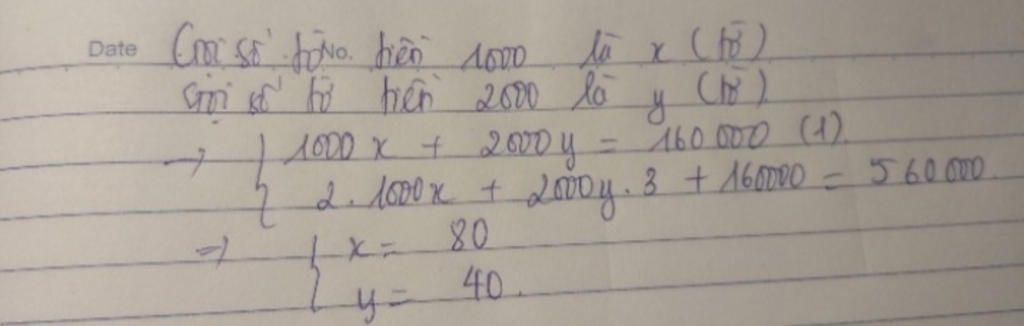 Date Gọi số tờ No. tiền 1000 là x (tờ)
Gọi số tờ tiền 2000 là y (tờ)
→ { 1000x + 2000y = 160 000 (1)
2. 1000x + 2000y. 3 + 160000 = 560 000.
⇒ { x = 80
y = 40.